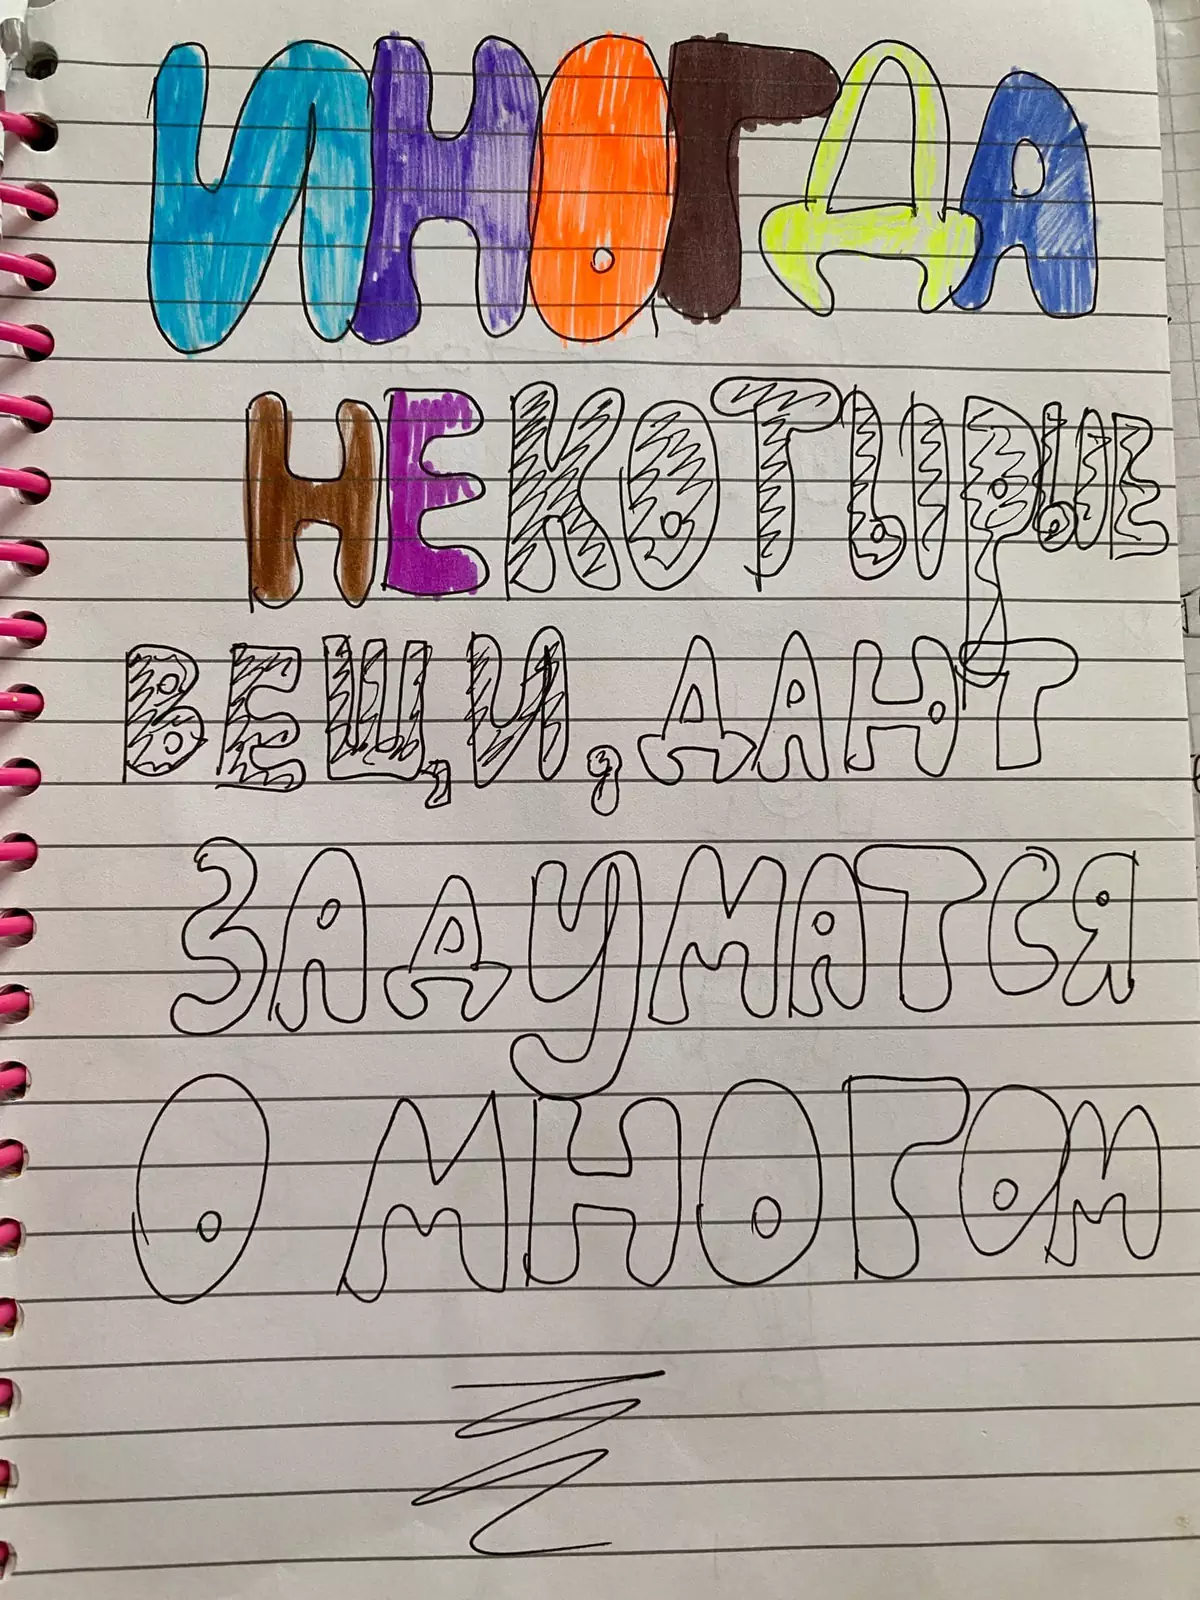 ИНОГДА
НЕКОТЫРЫЕ
ВЕЩИ, ДАЮТ
ЗАДУМАТСЯ
О МНОГОМ